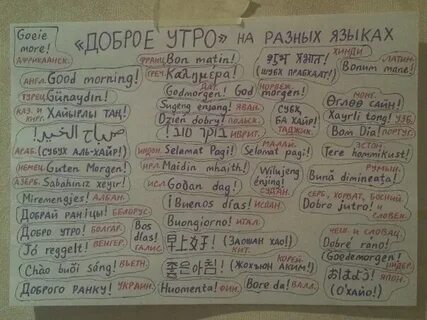 Goeie more!
АФРИКААНСК.
«ДОБРОЕ УТРО» НА РАЗНЫХ ЯЗЫКАХ
АНГЛ. Good morning!
ТУРЕЦ. Günaydın!
КАЗ. И КИРГ. ХАЙЫРЛЫ ТАҢ!
صباح الخير!
АРАБ. (СУБУХ АЛЬ-ХАЙР!)
НЕМЕЦ. Guten Morgen!
АЗЕРБ. Sabahınız xeyir!
Miremengjes! АЛБАН.
ДОБРАЙ РАНІЦЫ! БЕЛОРУС.
ДОБРО УТРО! БОЛГАР.
Jó reggelt! ВЕНГЕР.
(Chào buổi sáng! ВЬЕТН.
ДОБРОГО РАНКУ! УКРАИН.
ФРАНЦ. Bon matin!
ГРЕЧ. Καλημέρα!
ДАТ. Godmorgen!
НОРВЕЖ. God morgen!
Sugeng enjang! ЯВАН.
Dzień dobry! ПОЛЬСК.
בוקר טוב! ИВРИТ.
СУБХ, БА ХАЙР! ТАДЖИК.
ИНДОН. Selamat Pagi!
МАЛАЙ. Selamat pagi!
ИРЛ. Maidin mhaith!
ИСЛ. Góðan dag!
Wilujeng énjing! СУДАН.
¡Buenos días! ИСПАН.
Bos días! ГАЛИС.
Buongiorno! ИТАЛ.
早上好! (ЗАОШАН ХАО!) КИТ.
좋은아침! (ЖОХЪЮН АКИМ!) КОРЕЙ.
Huomenta! ФИН.
Bore da! ВАЛЛ.
शुभ प्रभात! (ШУБХ ПРАБХАЛТ!) ХИНДИ
ЛАТИН. Bonum mane!
МОНГ. Өглөө сайн!
Xayrli tong! УЗБ.
Bom Dia! ПОРТУГ.
ЭСТОН. Tere hommikust!
РУМЫН. Bună dimineața!
СЕРБ., ХОРВАТ., БОСНИЙ. И СЛОВЕН. Dobro jutro!
ЧЕШ. И СЛОВАЦ. Dobré ráno!
Goedemorgen! НИДЕР.
おはよう! (О'ХАЙО!) ЯП.